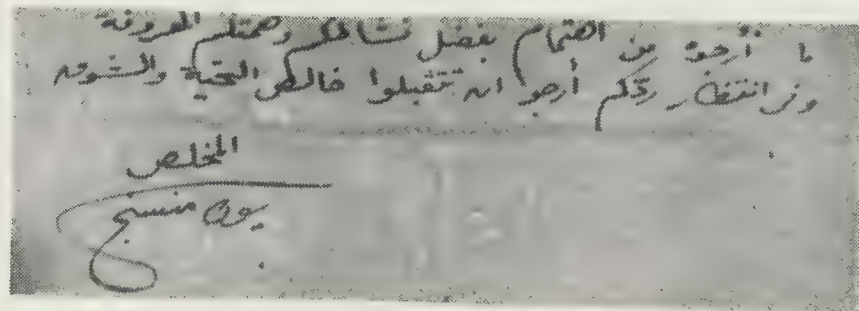 ما أرجوه من اهتمام بفضل نشاطكم وهمتكم المعروفة
وفي انتظار ردكم أرجو ان تتقبلوا خالص التحية والشوق
المخلص